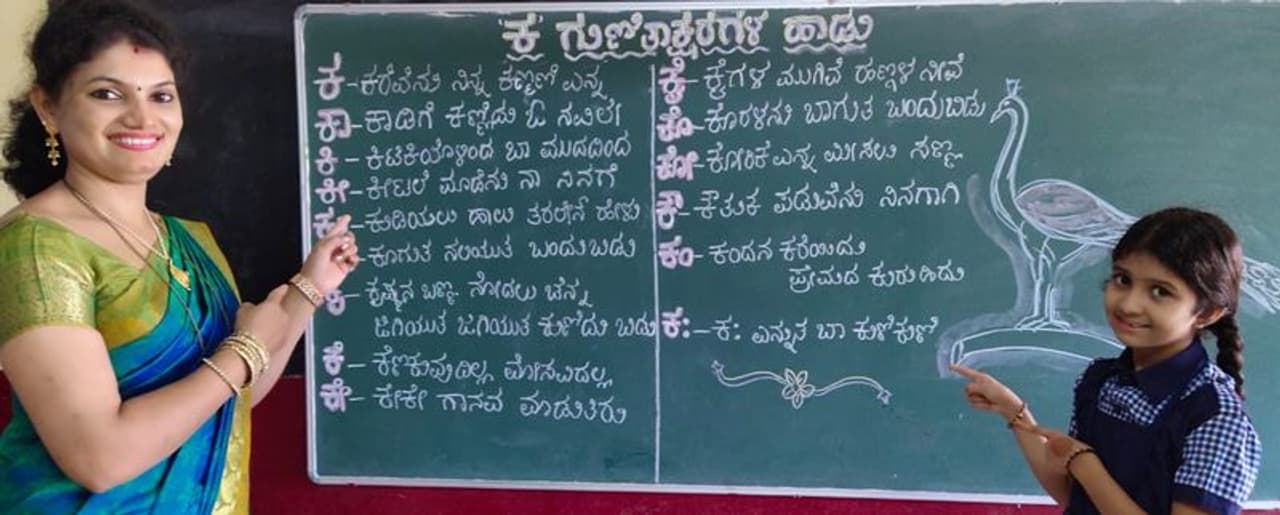 'ಕ' ಗುಣಿತಾಕ್ಷರಗಳ ಹಾಡು
ಕ - ಕರೆವೆನು ನಿನ್ನ ಕಣ್ಮಣಿ ಎನ್ನ
ಕಾ - ಕಾಡಿಗೆ ಕಣ್ಣಿನ ಓ ನವಿಲೇ
ಕಿ - ಕಿಟಕಿಯೊಳಿಂದ ಬಾ ಮುದದಿಂದ
ಕೀ - ಕೀಟಲೆ ಮಾಡೆನು ನಾ ನಿನಗೆ
ಕು - ಕುಡಿಯಲು ಹಾಲು ತರಲೇನೆ ಹೇಳು
ಕೂಗುತ ನಲಿಯುತ ಬಂದುಬಿಡು
ಕೃ - ಕೃಷ್ಣನ ಬಣ್ಣ ನೋಡಲು ಚೆನ್ನ
ಜಿಗಿಯುತ ಜಿಗಿಯುತ ಕುಣಿದು ಬಿಡು
ಕೆ - ಕೆಣಕುವುದಿಲ್ಲ ಮೋಸವಿದಲ್ಲ
ಕೇ - ಕೇಕೇ ಗಾನವ ಮಾಡುತಿರು
ಕೈ - ಕೈಗಳ ಮುಗಿವೆ ಹಣ್ಗಳ ನೀವೆ
ಕೊ - ಕೊರಳನು ಬಾಗುತ ಬಂದುಬಿಡು
ಕೋ - ಕೋರಿಕೆ ಎನ್ನ ಮೀಸಲು ಸಣ್ಣ
ಕೌ - ಕೌತುಕ ಪಡುವೆನು ನಿನಗಾಗಿ
ಕಂ - ಕಂದನ ಕರೆಯಿದು
ಪ್ರೇಮದ ಕುರುಹಿದು
ಕಃ - ಕಃ ಎನ್ನುತ ಬಾ ಕುಣಿಕುಣಿ